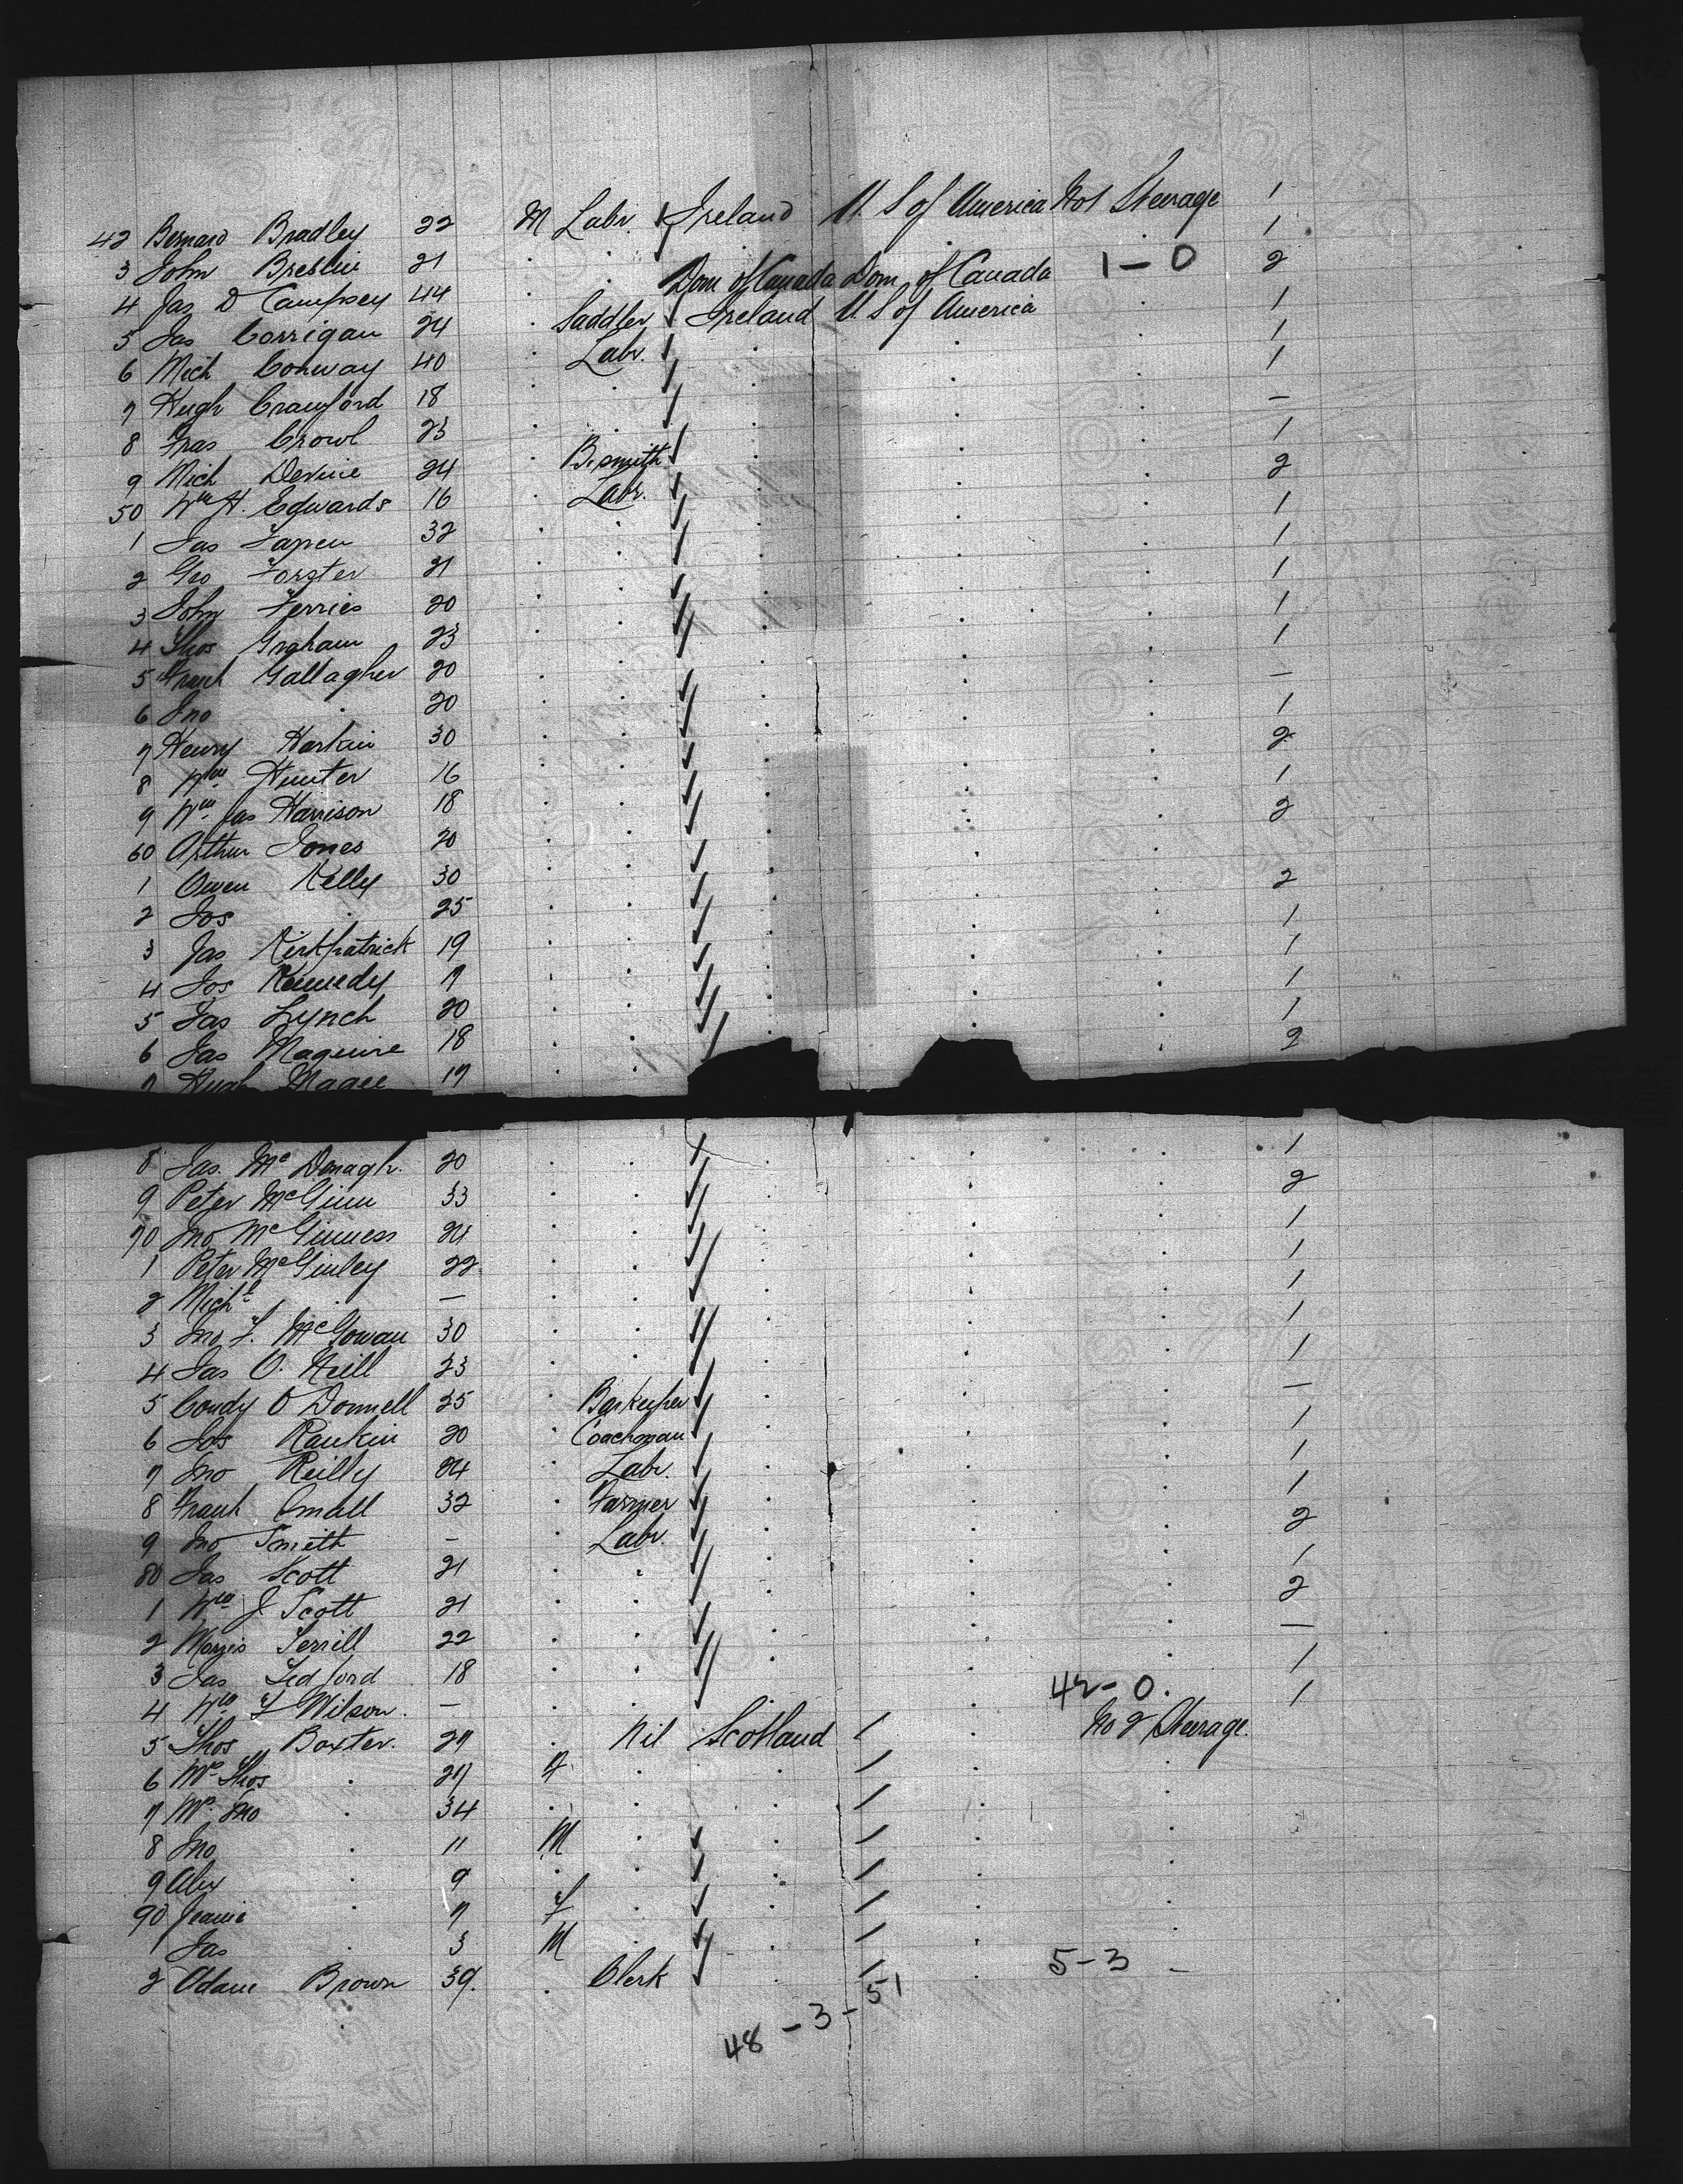 42 Bernard Bradley 22 M Labr. Ireland U. S of America No 1 Steerage 1
3 John Breslin 21 . . . . . 1
4 Jas D Campsey 44 . . Dom of Canada Dom. of Canada 1 - 0 2
5 Jas Corrigan 24 . Saddler Ireland U. S of America 1
6 Mich Conway 40 . Labr. . . . 1
7 Hugh Crawford 18 . . . . . 1
8 Fras Crowl 23 . . . . . —
9 Mich Devine 24 . B. smith . . . 1
50 Wm H. Edwards 16 . Labr. . . . 2
1 Jas 32 . . . . . 1
2 Geo Forster 21 . . . . . 1
3 John Ferries 20 . . . . . 1
4 Thos Graham 23 . . . . . 1
5 Frank Gallagher 20 . . . . . 1
6 Jno . 20 . . . . . —
7 Henry Harkin 30 . . . . . 1
8 Wm Hunter 16 . . . . . 2
9 Wm Jas Harrison 18 . . . . . 1
60 Arthur Jones 20 . . . . . 2
1 Owen Kelly 30 . . . . .
2 Jos . 25 . . . . . 2
3 Jas Kirkpatrick 19 . . . . . 1
4 Jos Kennedy 17 . . . . . 1
5 Jas Lynch 20 . . . . . 1
6 Jas Maguire 18 . . . . . 1
7 Hugh Magee 17 . . . 2
8 Jas. Mc Donagh. 20 . . . . . 1
9 Peter McGinn 33 . . . . . 2
70 Jno McGinness 24 . . . . . 1
1 Peter McGinley 22 . . . . . 1
2 Michl . — . . . . . 1
3 Jno F. McGowan 30 . . . . . 1
4 Jas O. Neill 23 . . . . . 1
5 Condy O Donnell 25 . Barkeeper . . . —
6 Jos Rankin 20 . Coachman . . . 1
7 Jno Reilly 24 . Labr. . . . 1
8 Frank Small 32 . Farmer . . . 1
9 Jno Smith — . Labr. . . . 2
80 Jas Scott 21 . . . . . 1
1 Wm J Scott 21 . . . . . 2
2 Morris 22 . . . . . —
3 Jas Tedford 18 . . . . . 1
4 Wm Wilson. — . . . . 42 - 0. 1
5 Thos Baxter. 27 . Nil Scotland 1 . No 2 Steerage.
6 Mrs Thos . 27 F . . 1 . .
7 Mrs Jno . 34 . . . 1 . .
8 Jno . 11 M . . 1 . .
9 Alex . 9 . . . 1 . .
90 Jeanie . 7 F . . 1 . .
1 Jas . 3 M . . 1 . .
2 Adam Brown 39. . Clerk . 1 . 5 - 3 -
48 - 3 - 51